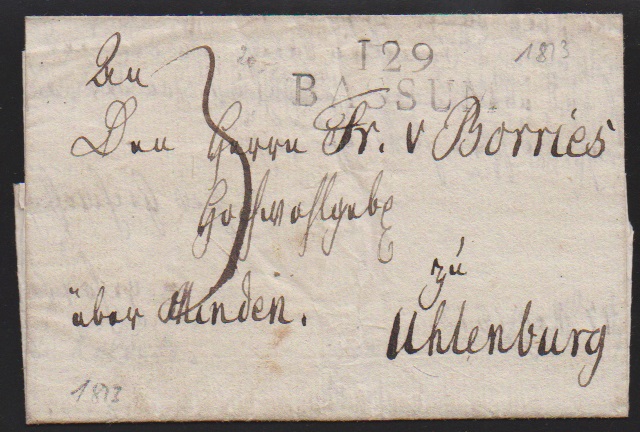 129
BASSUM
1813
An
Den Herrn Fr. v Borries
Hochwohlgeb
zu
über Minden.
Uhlenburg
3
1813